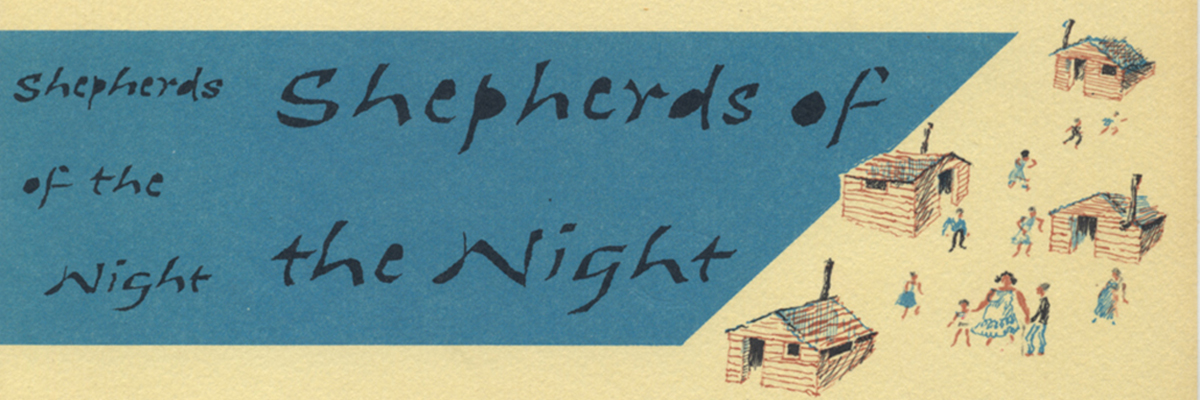 Shepherds
of the
Night
Shepherds of
the Night